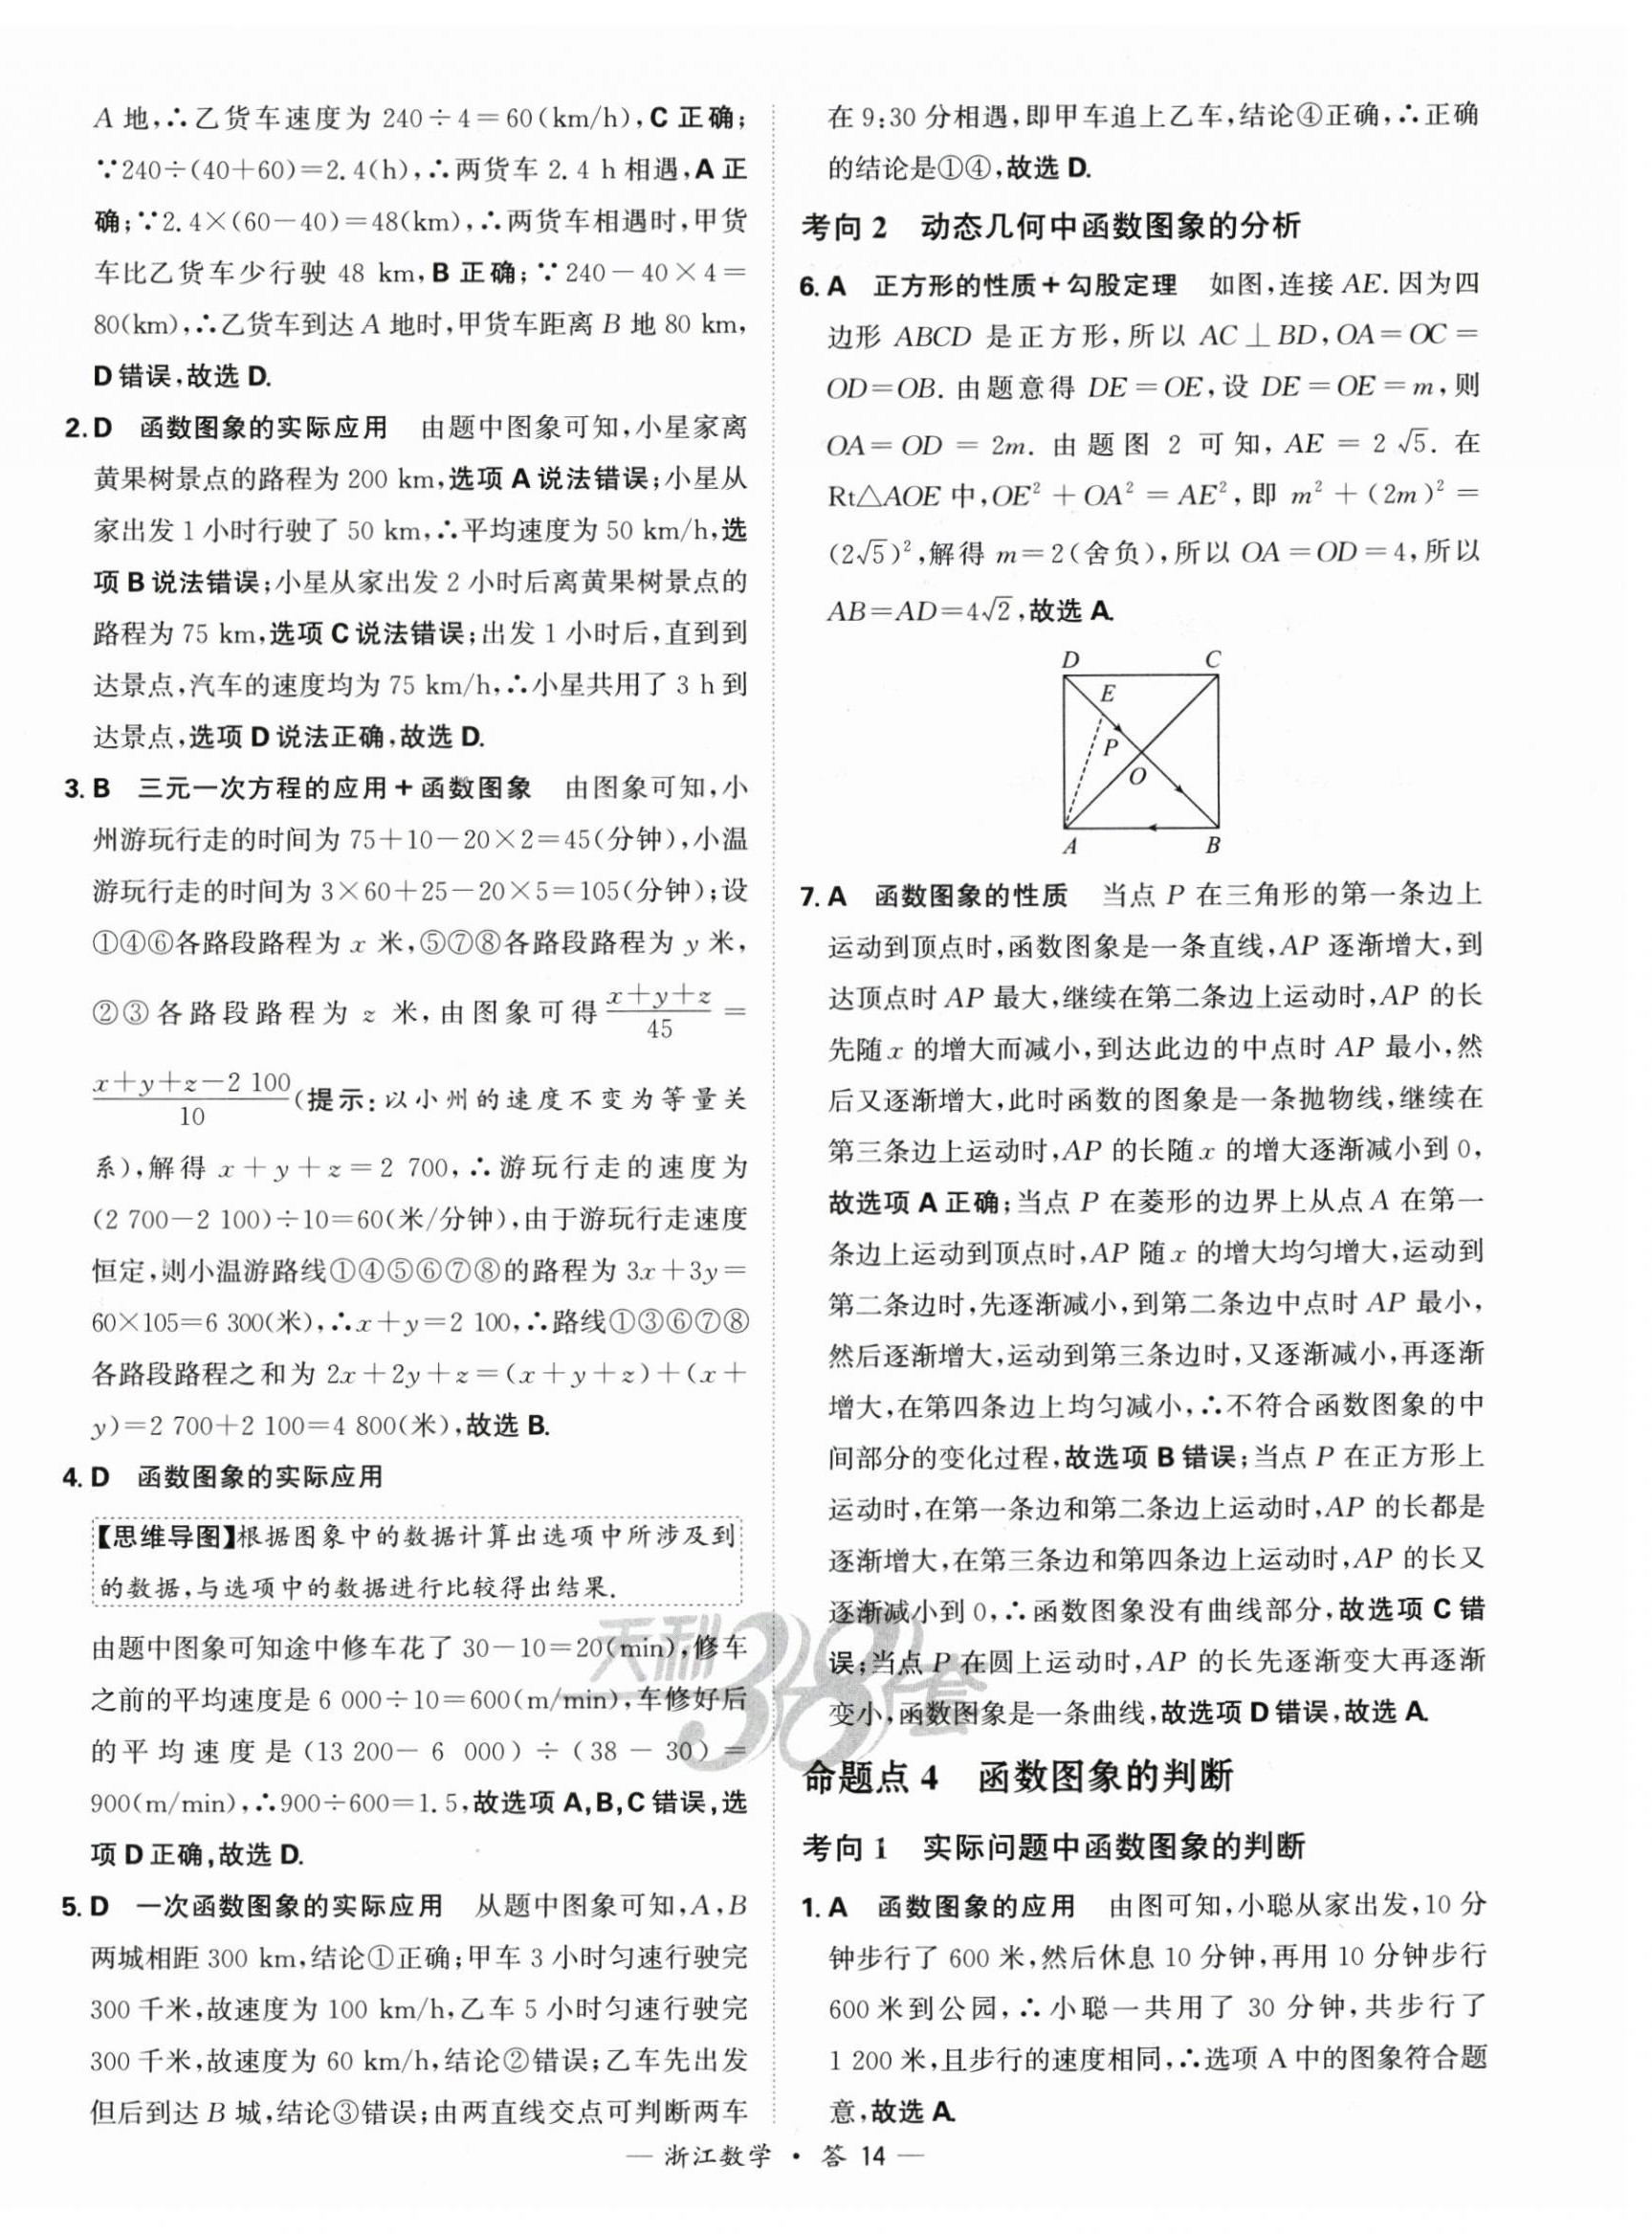 A 地,∴乙货车速度为 240÷4=60(km/h),C 正确;
∵240÷(40+60)=2.4(h),∴两货车 2.4 h 相遇,A 正
确;∵2.4×(60-40)=48(km),∴两货车相遇时,甲货
车比乙货车少行驶 48 km,B 正确;∵240-40×4=
80(km),∴乙货车到达 A 地时,甲货车距离 B 地 80 km,
D 错误,故选 D.
2. D 函数图象的实际应用 由题中图象可知,小星家离
黄果树景点的路程为 200 km,选项 A 说法错误;小星从
家出发 1 小时行驶了 50 km,∴平均速度为 50 km/h,选
项 B 说法错误;小星从家出发 2 小时后离黄果树景点的
路程为 75 km,选项 C 说法错误;出发 1 小时后,直到到
达景点,汽车的速度均为 75 km/h,∴小星共用了 3 h 到
达景点,选项 D 说法正确,故选 D.
3. B 三元一次方程的应用+函数图象 由图象可知,小
州游玩行走的时间为 75+10-20×2=45(分钟),小温
游玩行走的时间为 3×60+25-20×5=105(分钟);设
①④⑥各路段路程为 x 米,⑤⑦⑧各路段路程为 y 米,
②③各路段路程为 z 米,由图象可得 (x+y+z)/45 =
(x+y+z-2 100)/10 (提示:以小州的速度不变为等量关
系),解得 x+y+z=2 700,∴游玩行走的速度为
(2 700-2 100)÷10=60(米/分钟),由于游玩行走速度
恒定,则小温游路线①④⑤⑥⑦⑧的路程为 3x+3y=
60×105=6 300(米),∴x+y=2 100,∴路线①③⑥⑦⑧
各路段路程之和为 2x+2y+z=(x+y+z)+(x+
y)=2 700+2 100=4 800(米),故选 B.
4. D 函数图象的实际应用
【思维导图】根据图象中的数据计算出选项中所涉及到
的数据,与选项中的数据进行比较得出结果.
由题中图象可知途中修车花了 30-10=20(min),修车
之前的平均速度是 6 000÷10=600(m/min),车修好后
的平均速度是(13 200-6 000)÷(38-30)=
900(m/min),∴900÷600=1.5,故选项 A,B,C 错误,选
项 D 正确,故选 D.
5. D 一次函数图象的实际应用 从题中图象可知,A,B
两城相距 300 km,结论①正确;甲车 3 小时匀速行驶完
300 千米,故速度为 100 km/h,乙车 5 小时匀速行驶完
300 千米,故速度为 60 km/h,结论②错误;乙车先出发
但后到达 B 城,结论③错误;由两直线交点可判断两车
在 9:30 分相遇,即甲车追上乙车,结论④正确,∴正确
的结论是①④,故选 D.
考向 2 动态几何中函数图象的分析
6. A 正方形的性质+勾股定理 如图,连接 AE. 因为四
边形 ABCD 是正方形,所以 AC⊥BD,OA=OC=
OD=OB. 由题意得 DE=OE,设 DE=OE=m,则
OA=OD=2m. 由题图 2 可知,AE=2√5. 在
Rt△AOE 中,OE²+OA²=AE²,即 m²+(2m)²=
(2√5)²,解得 m=2(舍负),所以 OA=OD=4,所以
AB=AD=4√2,故选 A.
D C
E
P
O
A B
7. A 函数图象的性质 当点 P 在三角形的第一条边上
运动到顶点时,函数图象是一条直线,AP 逐渐增大,到
达顶点时 AP 最大,继续在第二条边上运动时,AP 的长
先随 x 的增大而减小,到达此边的中点时 AP 最小,然
后又逐渐增大,此时函数的图象是一条抛物线,继续在
第三条边上运动时,AP 的长随 x 的增大逐渐减小到 0,
故选项 A 正确;当点 P 在菱形的边界上从点 A 在第一
条边上运动到顶点时,AP 随 x 的增大均匀增大,运动到
第二条边时,先逐渐减小,到第二条边中点时 AP 最小,
然后逐渐增大,运动到第三条边时,又逐渐减小,再逐渐
增大,在第四条边上均匀减小,∴不符合函数图象的中
间部分的变化过程,故选项 B 错误;当点 P 在正方形上
运动时,在第一条边和第二条边上运动时,AP 的长都是
逐渐增大,在第三条边和第四条边上运动时,AP 的长又
逐渐减小到 0,∴函数图象没有曲线部分,故选项 C 错
误;当点 P 在圆上运动时,AP 的长先逐渐变大再逐渐
变小,函数图象是一条曲线,故选项 D 错误,故选 A.
天利38套
命题点 4 函数图象的判断
考向 1 实际问题中函数图象的判断
1. A 函数图象的应用 由图可知,小聪从家出发,10 分
钟步行了 600 米,然后休息 10 分钟,再用 10 分钟步行
600 米到公园,∴小聪一共用了 30 分钟,共步行了
1 200 米,且步行的速度相同,∴选项 A 中的图象符合题
意,故选 A.
— 浙江数学 · 答 14 —